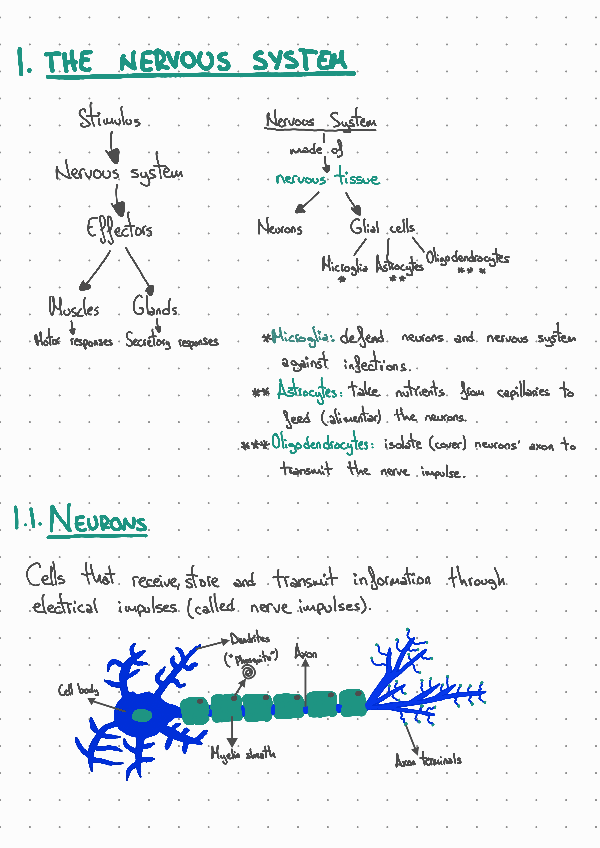 1. THE NERVOUS SYSTEM
Stimulus
Nervous system
Effectors
Muscles Glands
Motor responses Secretory responses
Nervous System
made of
nervous tissue
Neurons Glial cells
Microglia Astrocytes Oligodendrocytes
* ** ***
*Microglia: defend neurons and nervous system
against infections.
** Astrocytes: take nutrients from capillaries to
feed (alimentar) the neurons.
***Oligodendrocytes: isolate (cover) neurons' axon to
transmit the nerve impulse.
1.1. NEURONS
Cells that receive, store and transmit information through
electrical impulses (called nerve impulses).
Dendrites
Axon
Cell body
Myelin sheath
Axon terminals